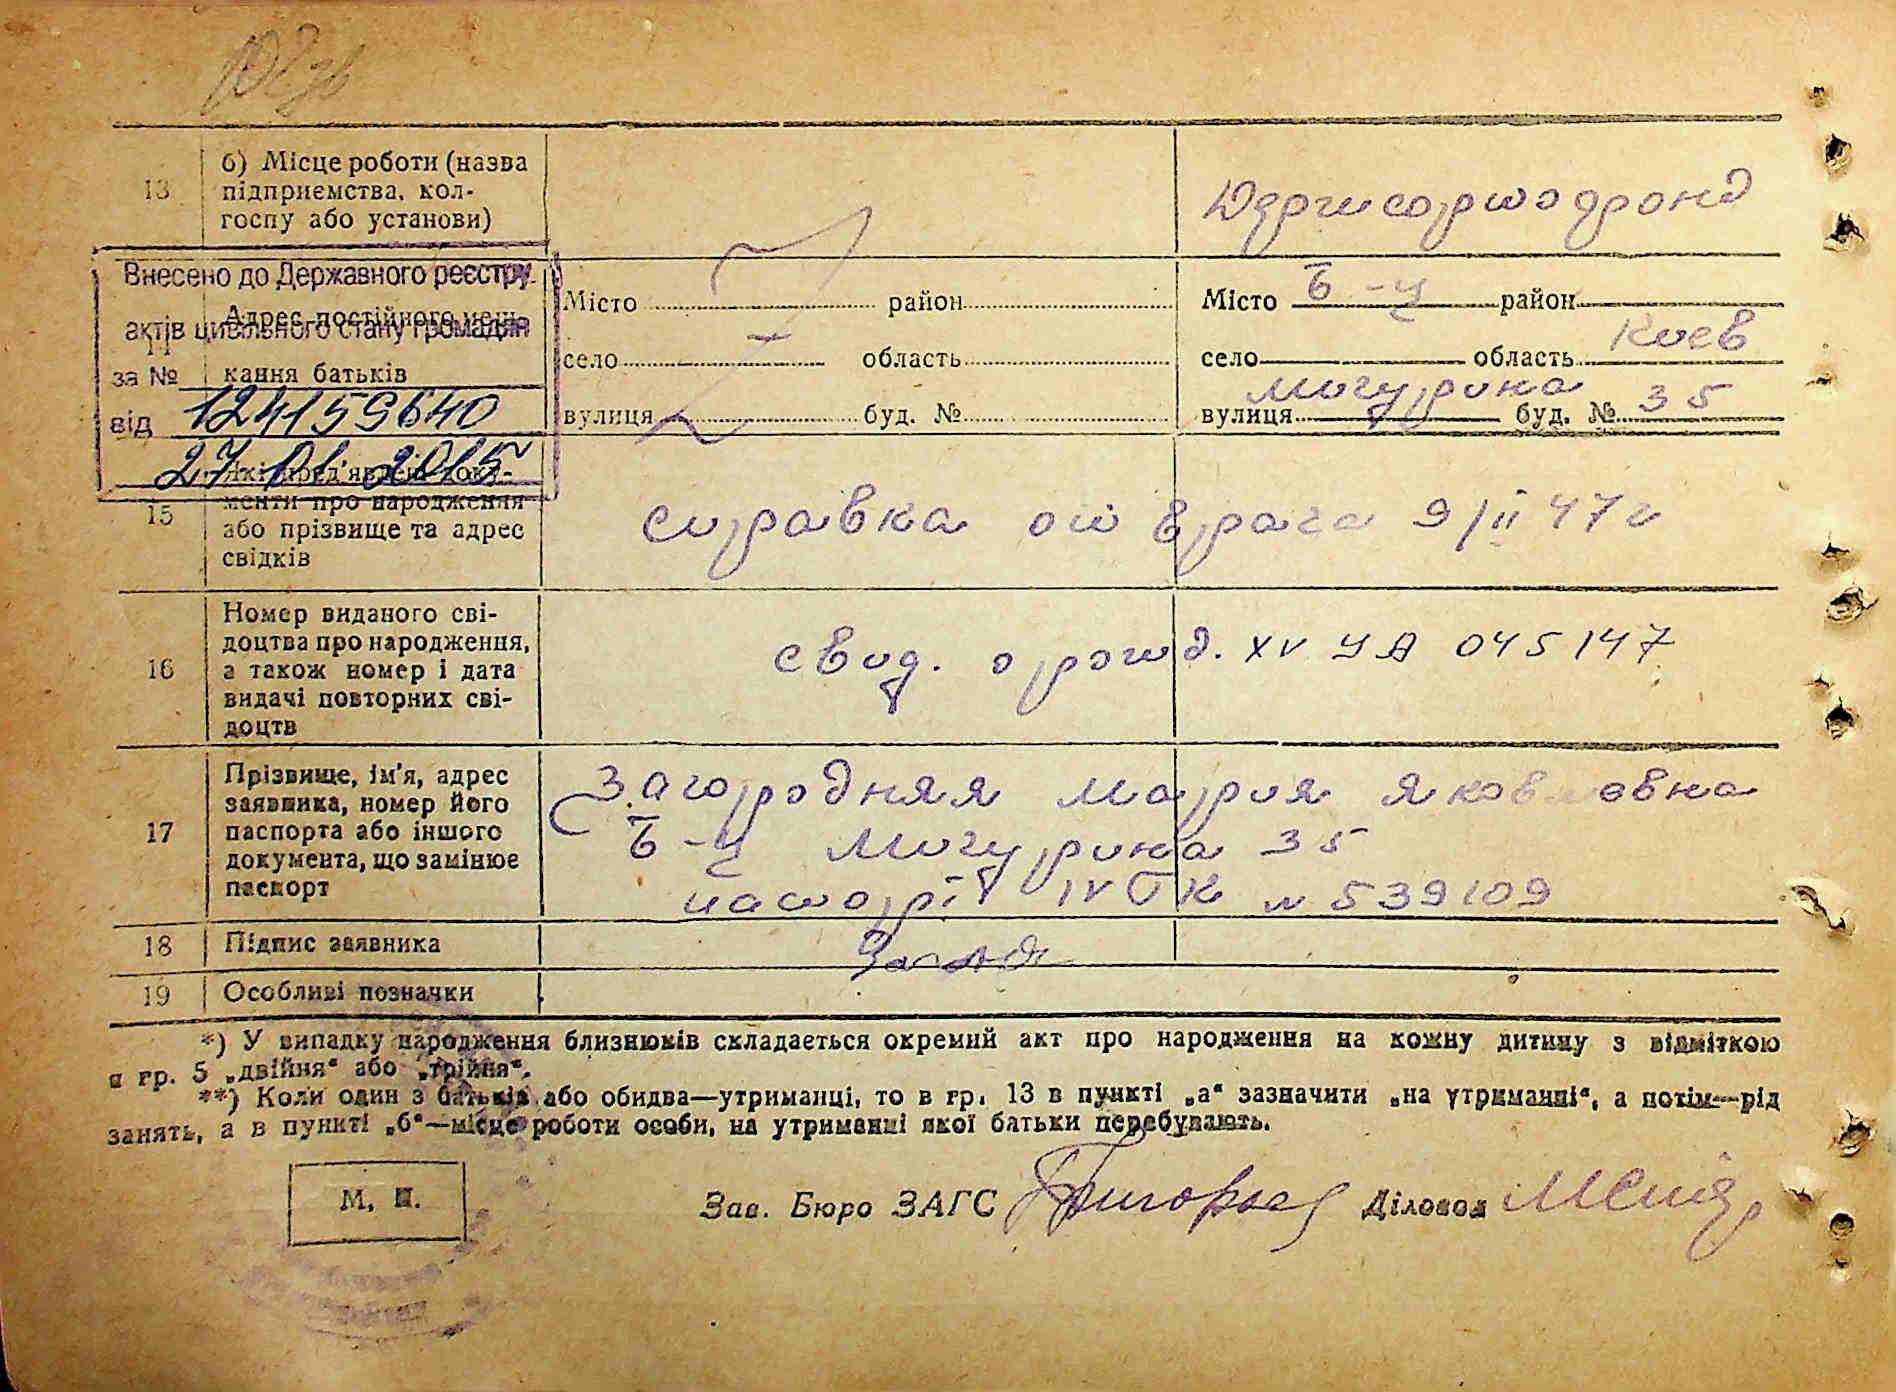 13 б) Місце роботи (назва
підприємства, кол-
госпу або установи)
Держсортфонд
Внесено до Державного реєстру
актів цивільного стану громадян
за № 124159640
від 27.01.2015
14 Адрес постійного меш-
кання батьків
Місто район
село область
вулиця буд. №
Місто Б-Ц район
село область Киев
вулиця Мичурина буд. № 35
15 Які пред'явлені доку-
менти про народження
або прізвище та адрес
свідків
справка от врача 9/II 47 г
16 Номер виданого сві-
доцтва про народження,
а також номер і дата
видачі повторних сві-
доцтв
свид. о рожд. XV УА 045147
17 Прізвище, ім'я, адрес
заявника, номер його
паспорта або іншого
документа, що замінює
паспорт
Загородняя Мария Яковлевна
Б-Ц Мичурина 35
паспорт IV ТК № 539109
18 Підпис заявника
19 Особливі позначки
*) У випадку народження близнюків складається окремий акт про народження на кожну дитину з відміткою
в гр. 5 „двійня“ або „трійня“.
**) Коли один з батьків або обидва—утриманці, то в гр. 13 в пункті „а“ зазначити „на утриманні“, а потім—рід
занять, а в пункті „б“—місце роботи особи, на утриманні якої батьки перебувають.
М. П.
Зав. Бюро ЗАГС Діловод